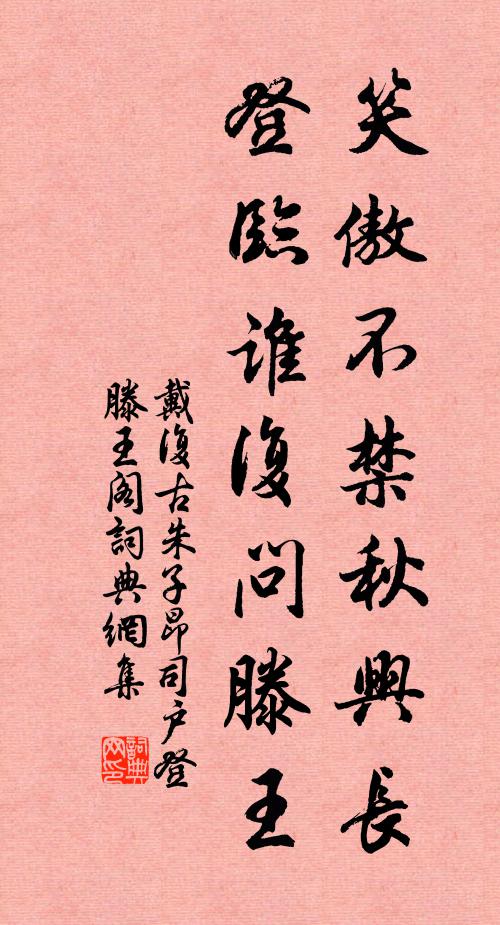 笑傲不禁秋興長
登臨誰復問滕王
戴復古朱子昂司户登
滕王阁詞典網集
詞典网印